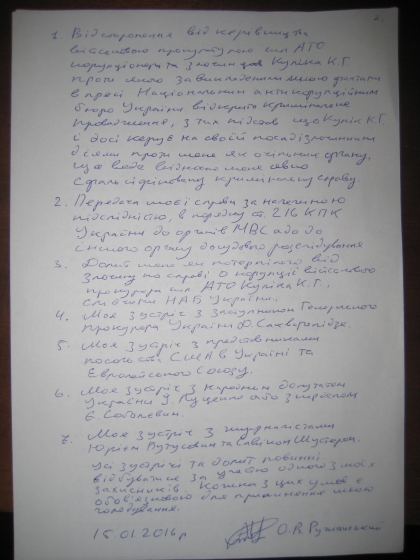 2.
1. Відсторонення від керівництва
військовою прокуратурою сил АТО
корупціонера та злочинця Куліка К.Г.
проти якого за викладеними мною фактами
в пресі Національним антикорупційним
бюро України відкрито кримінальне
провадження, з тих підстав що Кулік К.Г.
і досі керує на своїй посаді злочинними
діями проти мене як очільник органу,
що веде відносно мене явно
сфальсифіковану кримінальну справу.
2. Передача моєї справи за належною
підслідністю, в порядку ст. 216 КПК
України до органів МВС або до
іншого органу досудового розслідування
3. Допит мене як потерпілого від
злочину по справі о корупції військового
прокурора сил АТО Куліка К.Г.,
слідчими НАБ України.
4. Моя зустріч з Заступником Генерального
прокурора України Д. Сакварелідзе.
5. Моя зустріч з представниками
посольств США в Україні та
Європейського Союзу.
6. Моя зустріч з народним депутатом
України І. Луценко або з
Є Соболєвим.
7. Моя зустріч з журналістами
Юрієм Бутусовим та Савіком Шустером.
Усі зустрічі та допит повинні
відбуватися за участю одного з моїх
захисників. Кожна з цих умов є
обов'язковою для припинення мною
голодування.
15.01.2016р О.В.